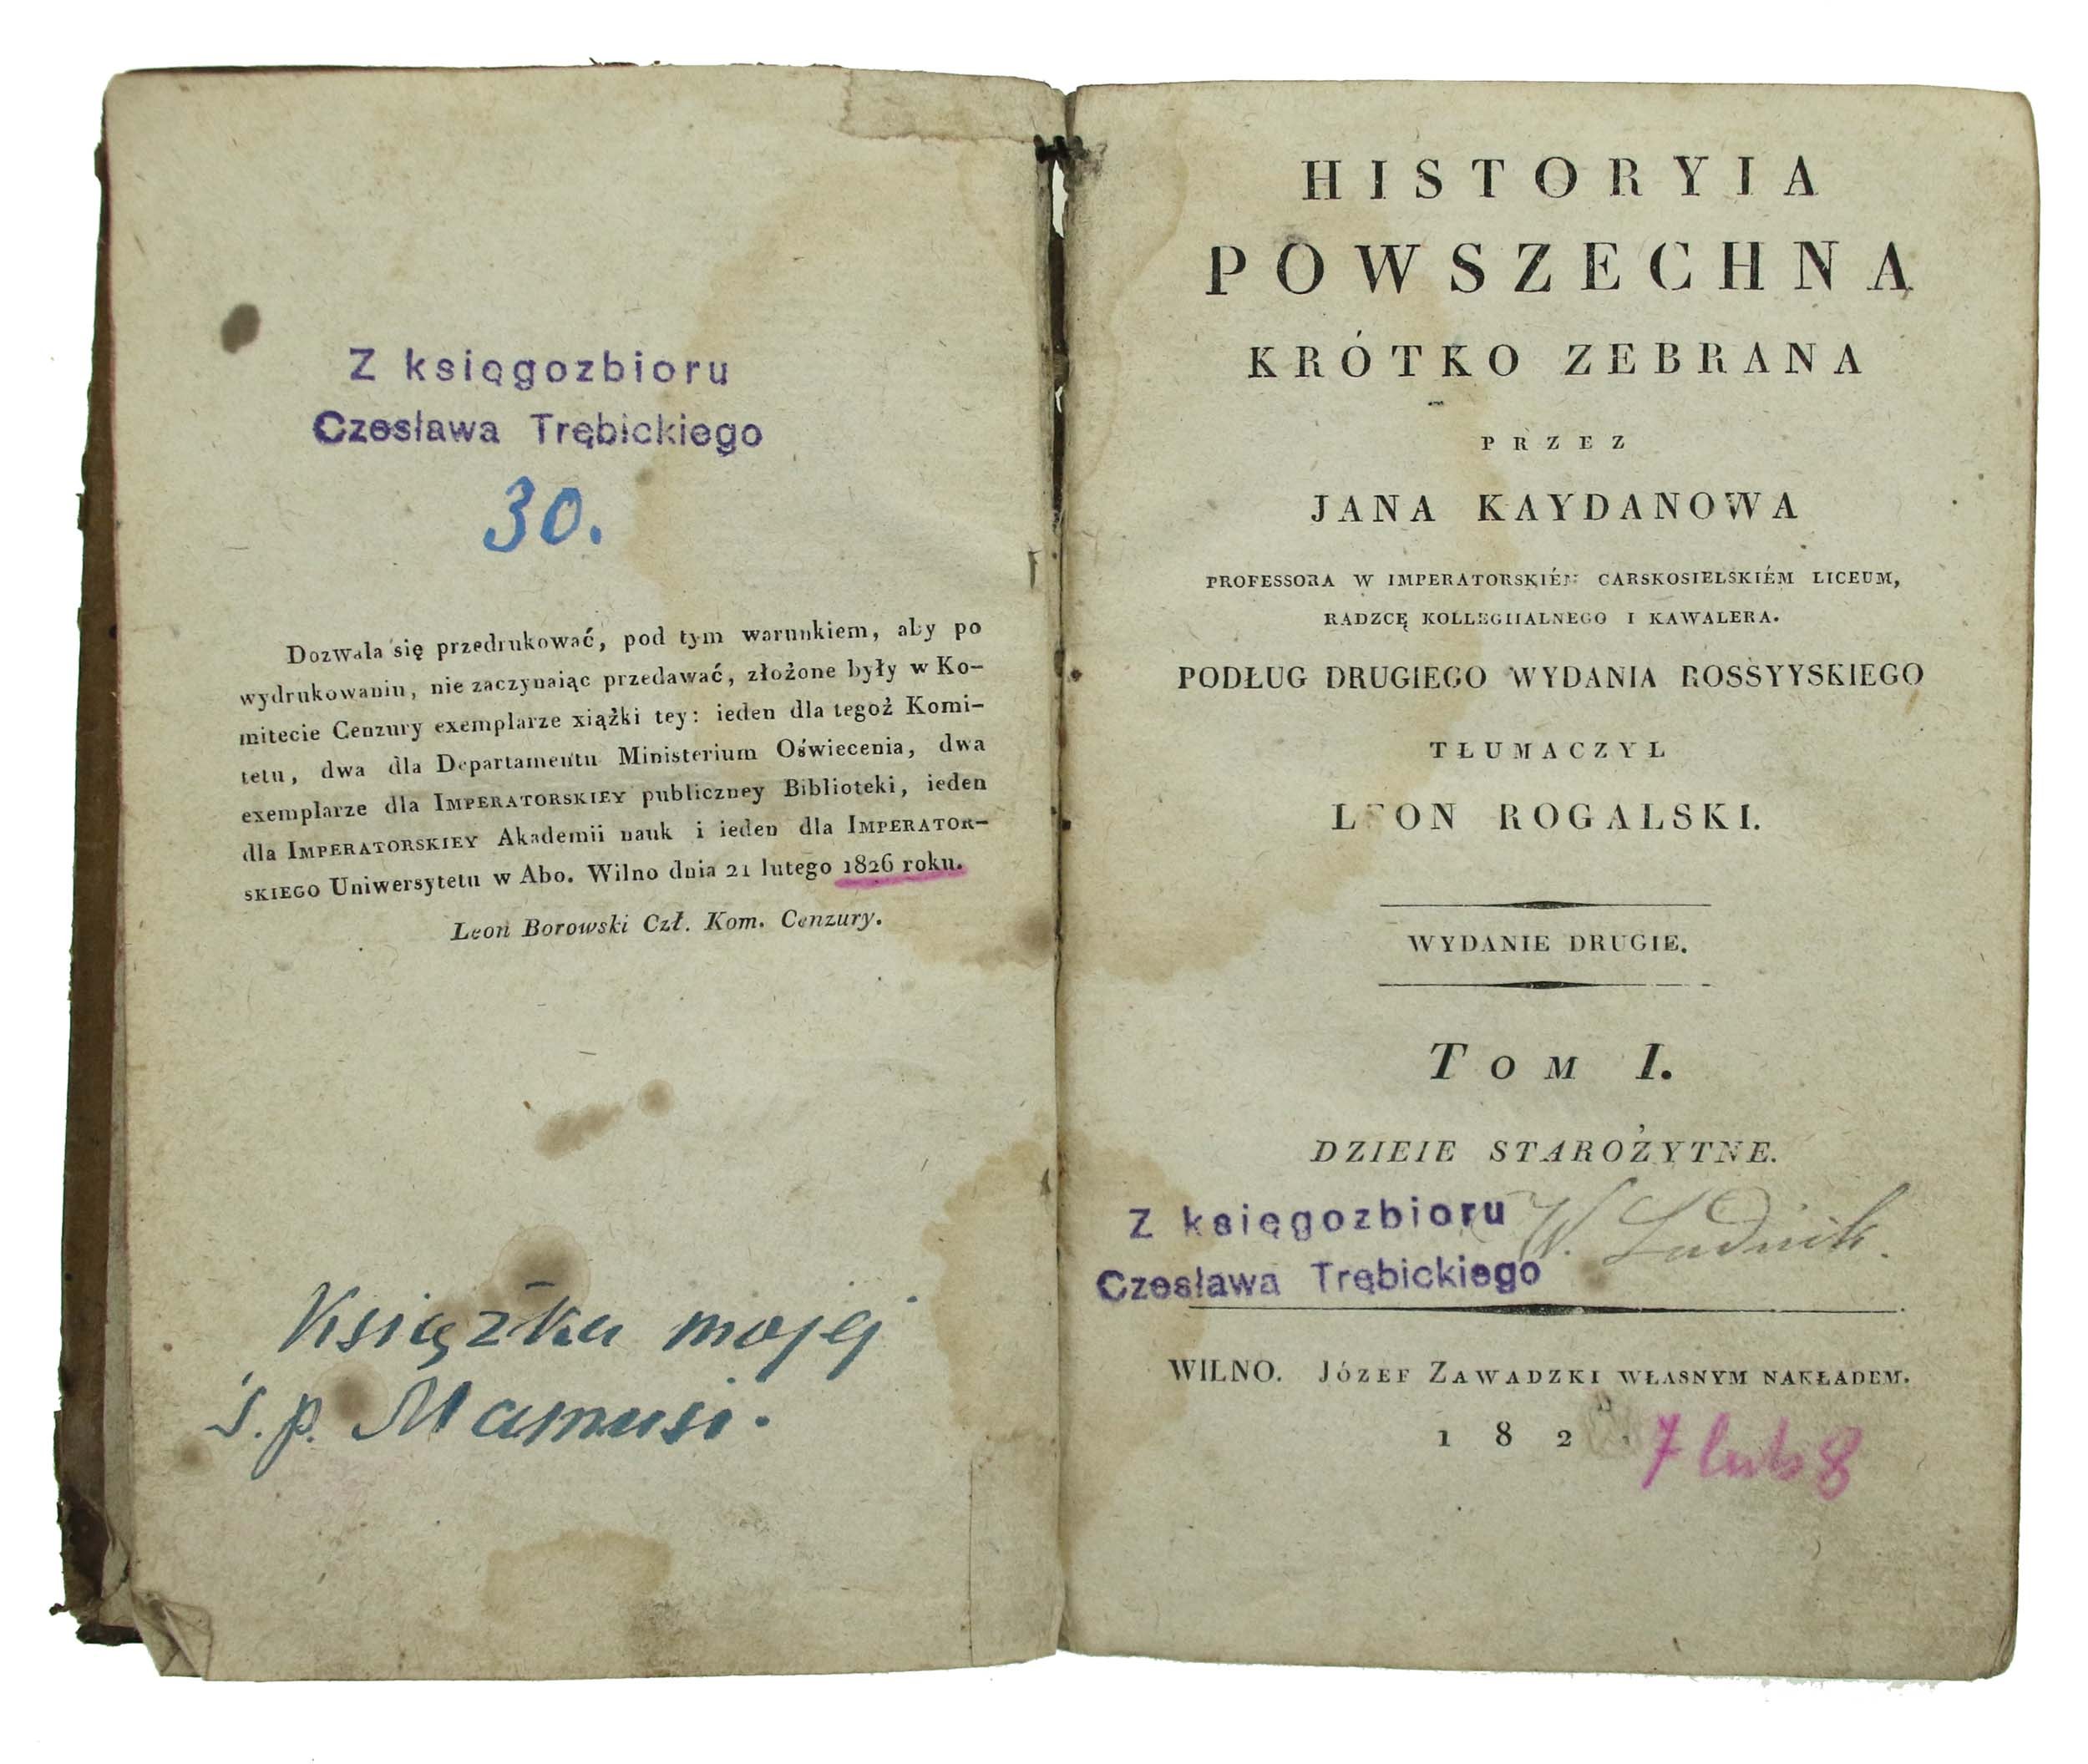 Z księgozbioru
Czesława Trębickiego
30.
Dozwala się przedrukować, pod tym warunkiem, aby po
wydrukowaniu, nie zaczynaiąc przedawać, złożone były w Ko-
mitecie Cenzury exemplarze xiążki tey: ieden dla tegoż Komi-
tetu, dwa dla Departamentu Ministerium Oświecenia, dwa
exemplarze dla IMPERATORSKIEY publiczney Biblioteki, ieden
dla IMPERATORSKIEY Akademii nauk i ieden dla IMPERATOR-
SKIEGO Uniwersytetu w Abo. Wilno dnia 21 lutego 1826 roku.
Leon Borowski Czł. Kom. Cenzury.
Książka mojej
ś.p. Mamusi.
HISTORYIA
POWSZECHNA
KRÓTKO ZEBRANA
PRZEZ
JANA KAYDANOWA
PROFESSORA W IMPERATORSKIÉM CARSKOSIELSKIÉM LICEUM,
RADZCĘ KOLLEGIIALNEGO I KAWALERA.
PODŁUG DRUGIEGO WYDANIA ROSSYYSKIEGO
TŁUMACZYŁ
LEON ROGALSKI.
WYDANIE DRUGIE.
TOM I.
DZIEIE STAROŻYTNE.
Z księgozbioru
W.
Czesława Trębickiego
WILNO. JÓZEF ZAWADZKI WŁASNYM NAKŁADEM.
182 7 lub 8